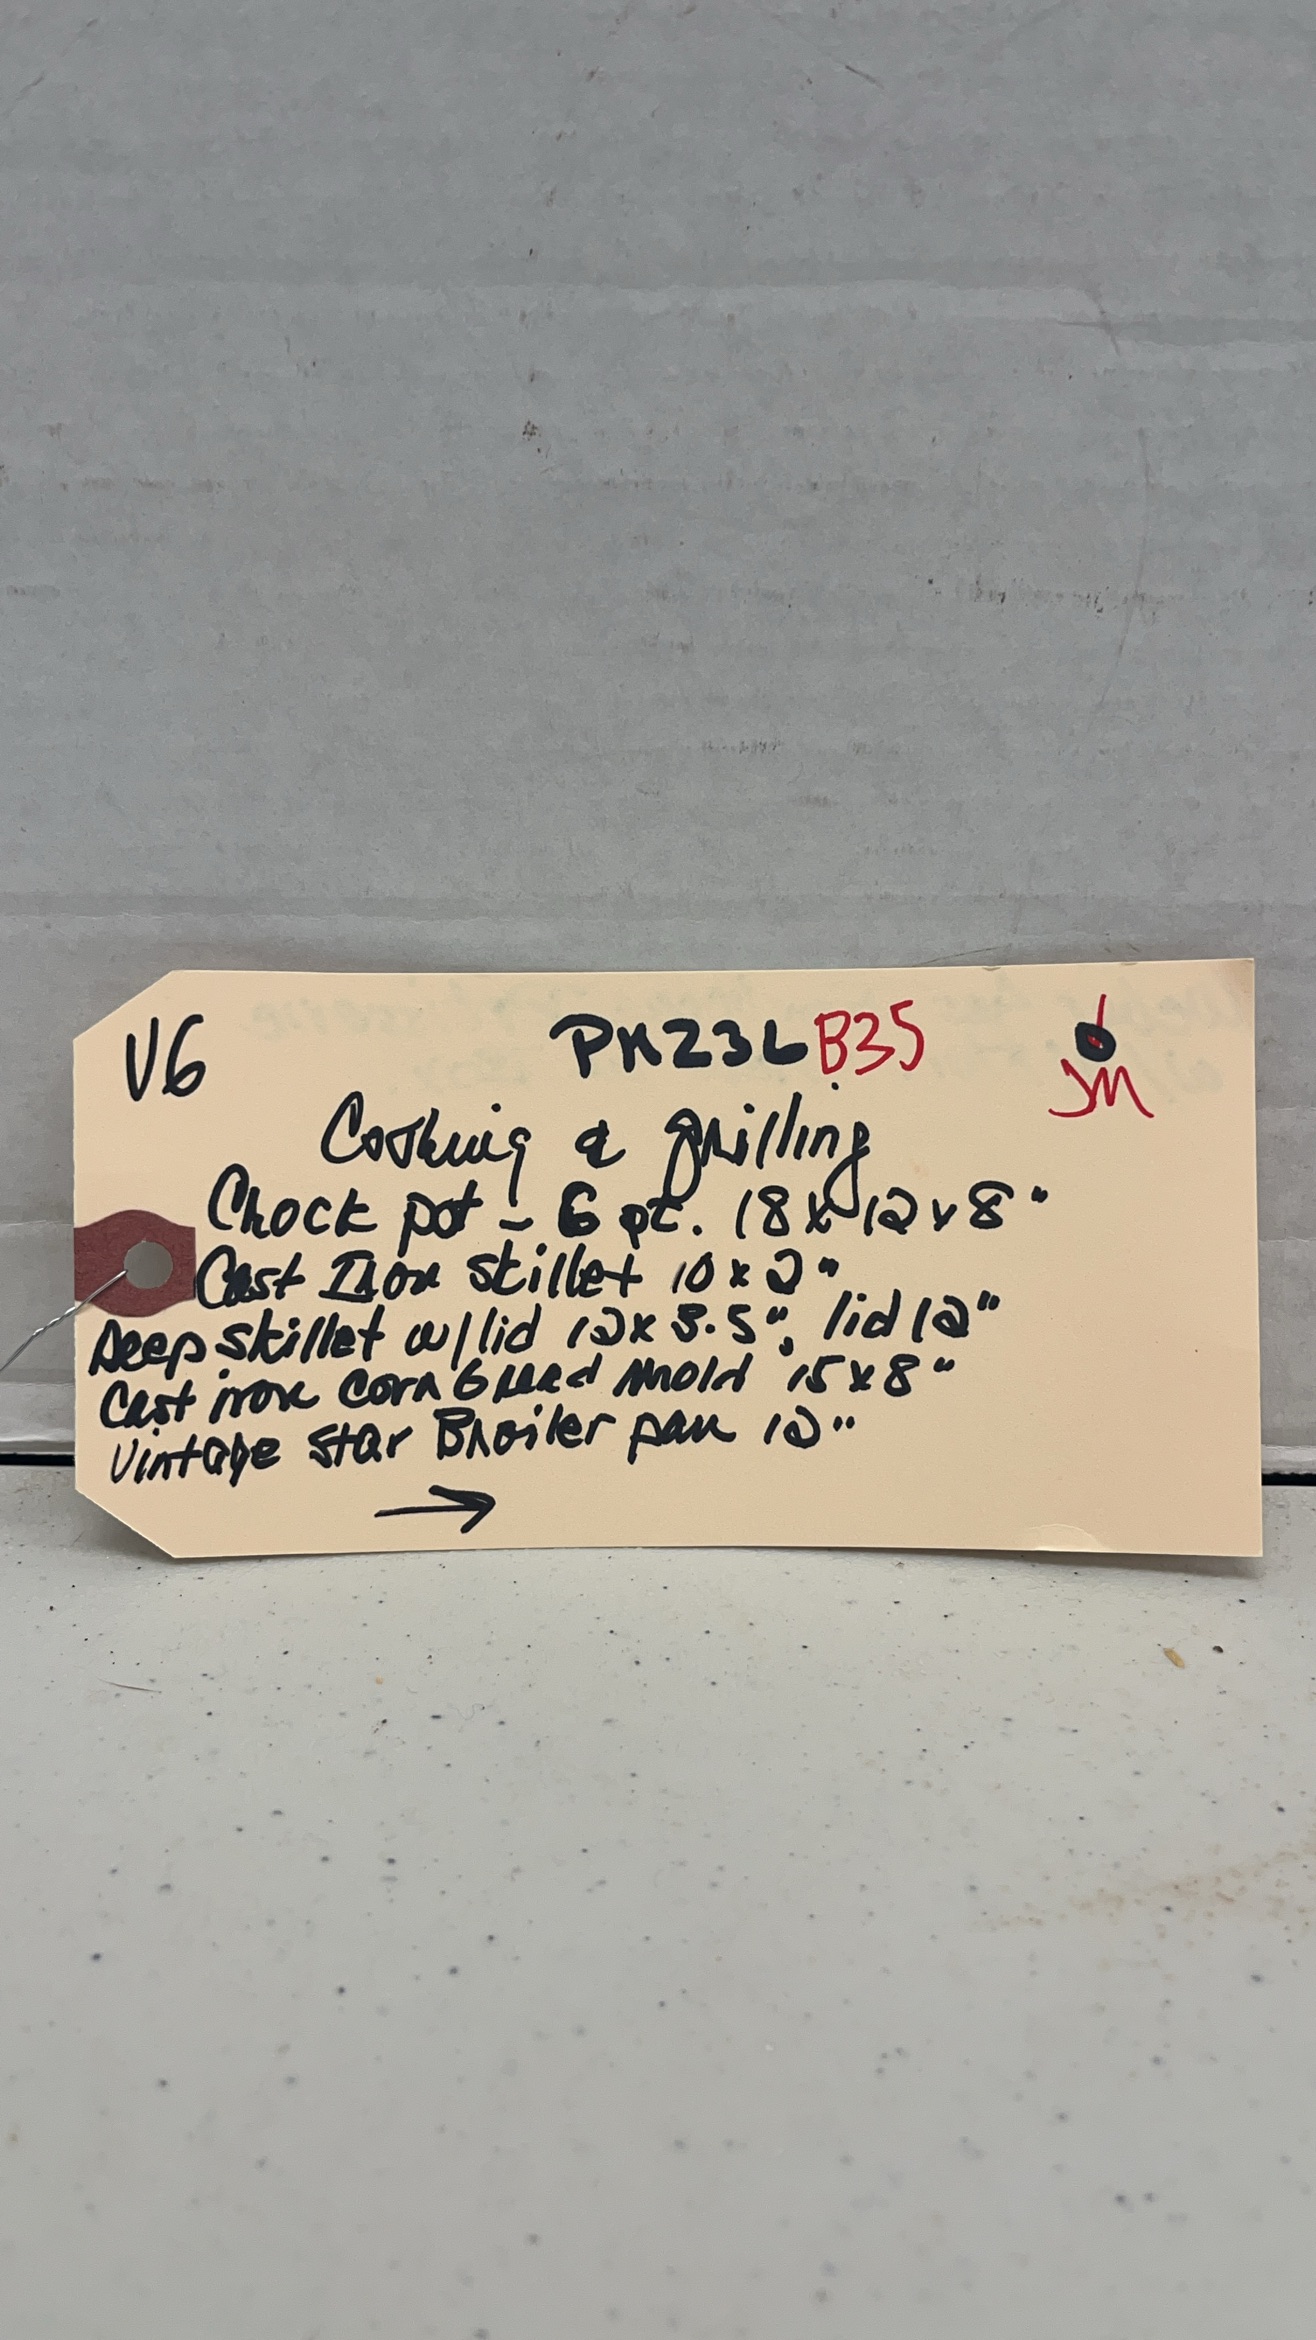 V6 PK236 B35
JM
Cooking & grilling
Crock pot - 6 qt. 18 x 12 x 8"
Cast Iron skillet 10 x 2"
Deep skillet w/lid 12 x 3.5", lid 12"
Cast iron corn bread mold 15 x 8"
Vintage Star Broiler pan 12"
→